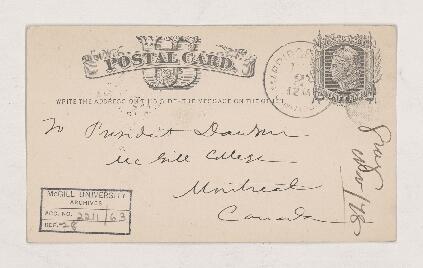 U S
POSTAL CARD.
WRITE THE ADDRESS ON THIS SIDE - THE MESSAGE ON THE OTHER
To President Dawson
McGill College
Montreal
Canada
McGILL UNIVERSITY
ARCHIVES
ACC. NO. 2211/63
REF. 28
Nov/78